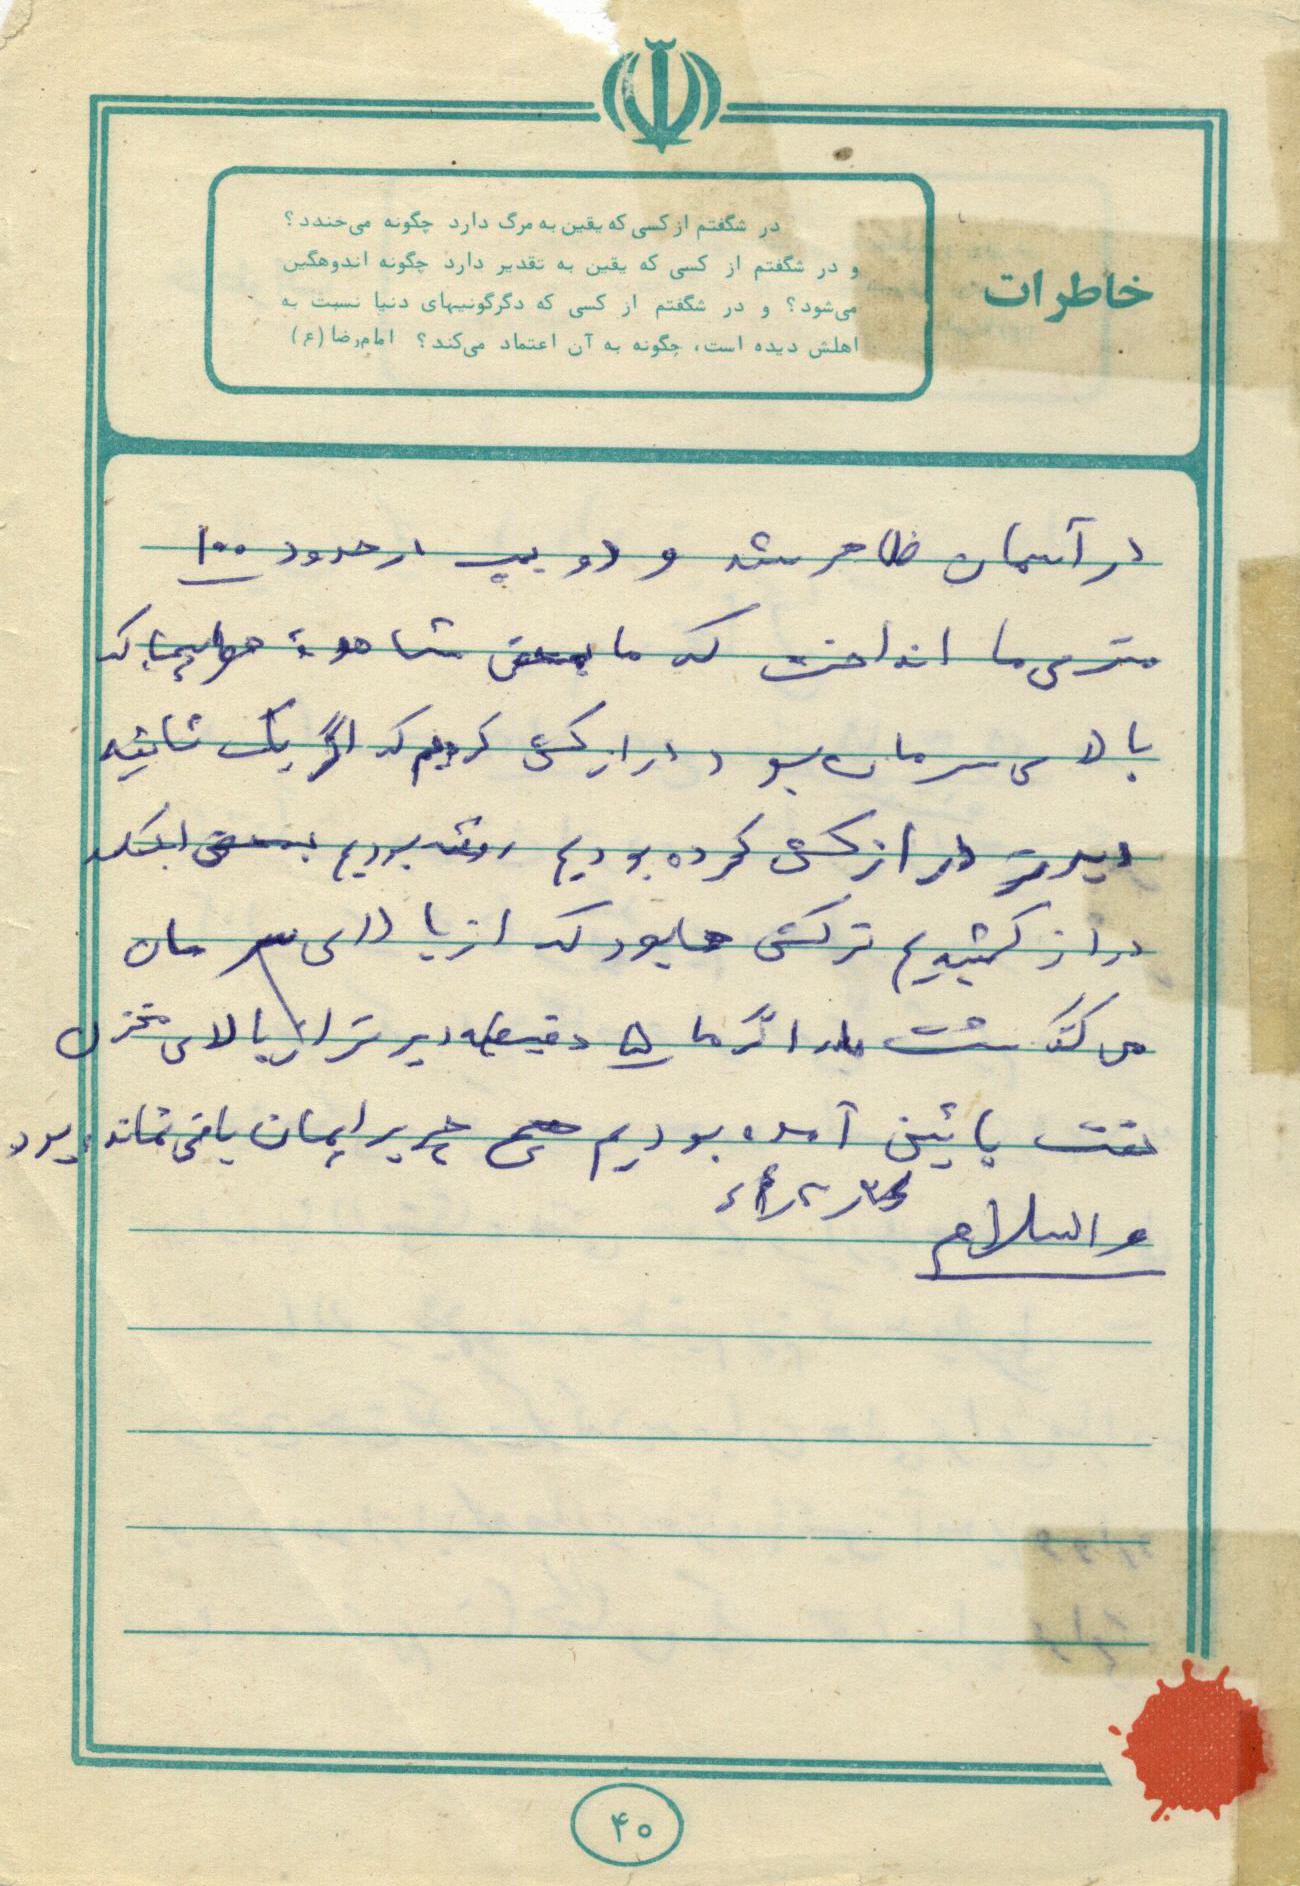 در شگفتم از کسی که یقین به مرگ دارد چگونه می‌خندد؟
و در شگفتم از کسی که یقین به تقدیر دارد چگونه اندوهگین
می‌شود؟ و در شگفتم از کسی که دگرگونیهای دنیا نسبت به
اهلش دیده است، چگونه به آن اعتماد می‌کند؟ امام‌رضا (ع)
خاطرات
در آسمان ظاهر شد و دو بمب در حدود ۱۰۰
متری ما انداخت که ما بمحض مشاهده هواپیما که
بالای سرمان بود درازکش کردیم که اگر یک ثانیه
دیرتر درازکش کرده بودیم رفته بودیم بمحض اینکه
دراز کشیدیم ترکش ها بود که از بالای سرمان
می گذشت اگر ما ۵ دقیقه دیرتر از بالای مخزن
نفت پائین آمده بودیم هیچ چیز برایمان باقی نمانده بود
والسلام
۴۰